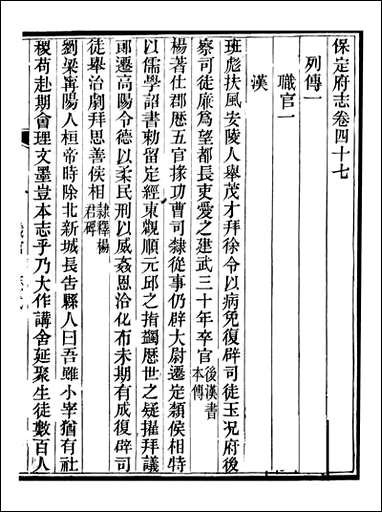 保定府志卷四十七
列傳一
職官一
漢
班彪扶風安陵人舉茂才拜徐令以病免復辟司徒玉況府後
察司徒廉為望都長吏愛之建武三十年卒官後漢書本傳
楊著仕郡歷五官掾功曹司隸從事仍辟大尉遷定潁侯相特
以儒學詔書勅留定經東觀順元邱之指蠲歷世之疑擢拜議
郎遷高陽令德以柔民刑以威姦恩洽化布未期有成復辟司
徒舉治劇拜思善侯相隸釋楊君碑
劉梁甯陽人桓帝時除北新城長告縣人曰吾雖小宰猶有社
稷苟赴期會理文墨豈本志乎乃大作講舍延聚生徒數百人